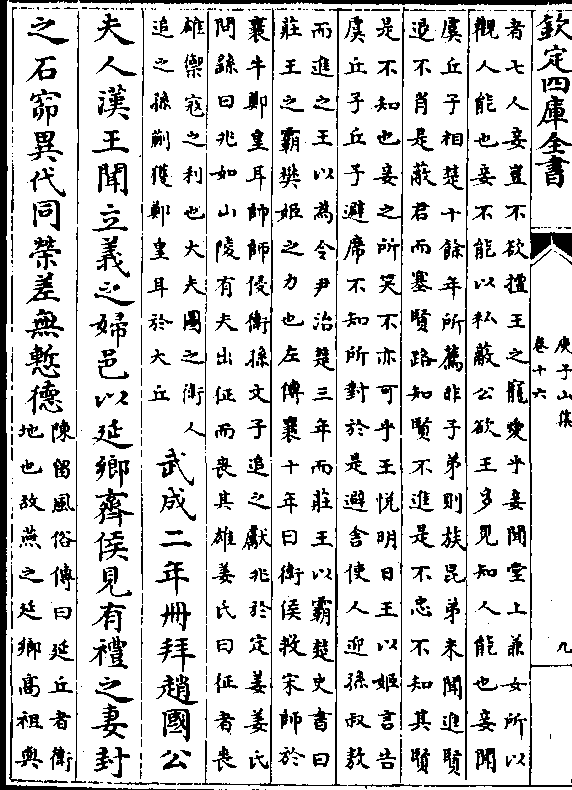 欽定四庫全書
庚子山集
卷十六
九
者七人妾豈不欲擅王之寵愛乎妾聞堂上兼女所以
觀人能也妾不能以私蔽公欲王多見知人能也妾聞
虞丘子相楚十餘年所薦非子弟則族昆弟未聞進賢
退不肖是蔽君而塞賢路知賢不進是不忠不知其賢
是不知也妾之所笑不亦可乎王悅明日王以姬言告
虞丘子丘子避席不知所對於是避舍使人迎孫叔敖
而進之王以為令尹治楚三年而莊王以霸楚史書曰
莊王之霸樊姬之力也左傳襄十年曰衛侯救宋師於
襄牛鄭皇耳帥師侵衛孫文子追之獻兆於定姜姜氏
問繇曰兆如山陵有夫出征而喪其雄姜氏曰征者喪
雄禦寇之利也大夫圖之衛人
追之孫蒯獲鄭皇耳於犬丘
武成二年冊拜趙國公
夫人漢王聞立義之婦邑以延鄉齊侯見有禮之妻封
之石窌異代同榮差無慙德
陳留風俗傳曰延丘者衛
地也故燕之延鄉高祖與